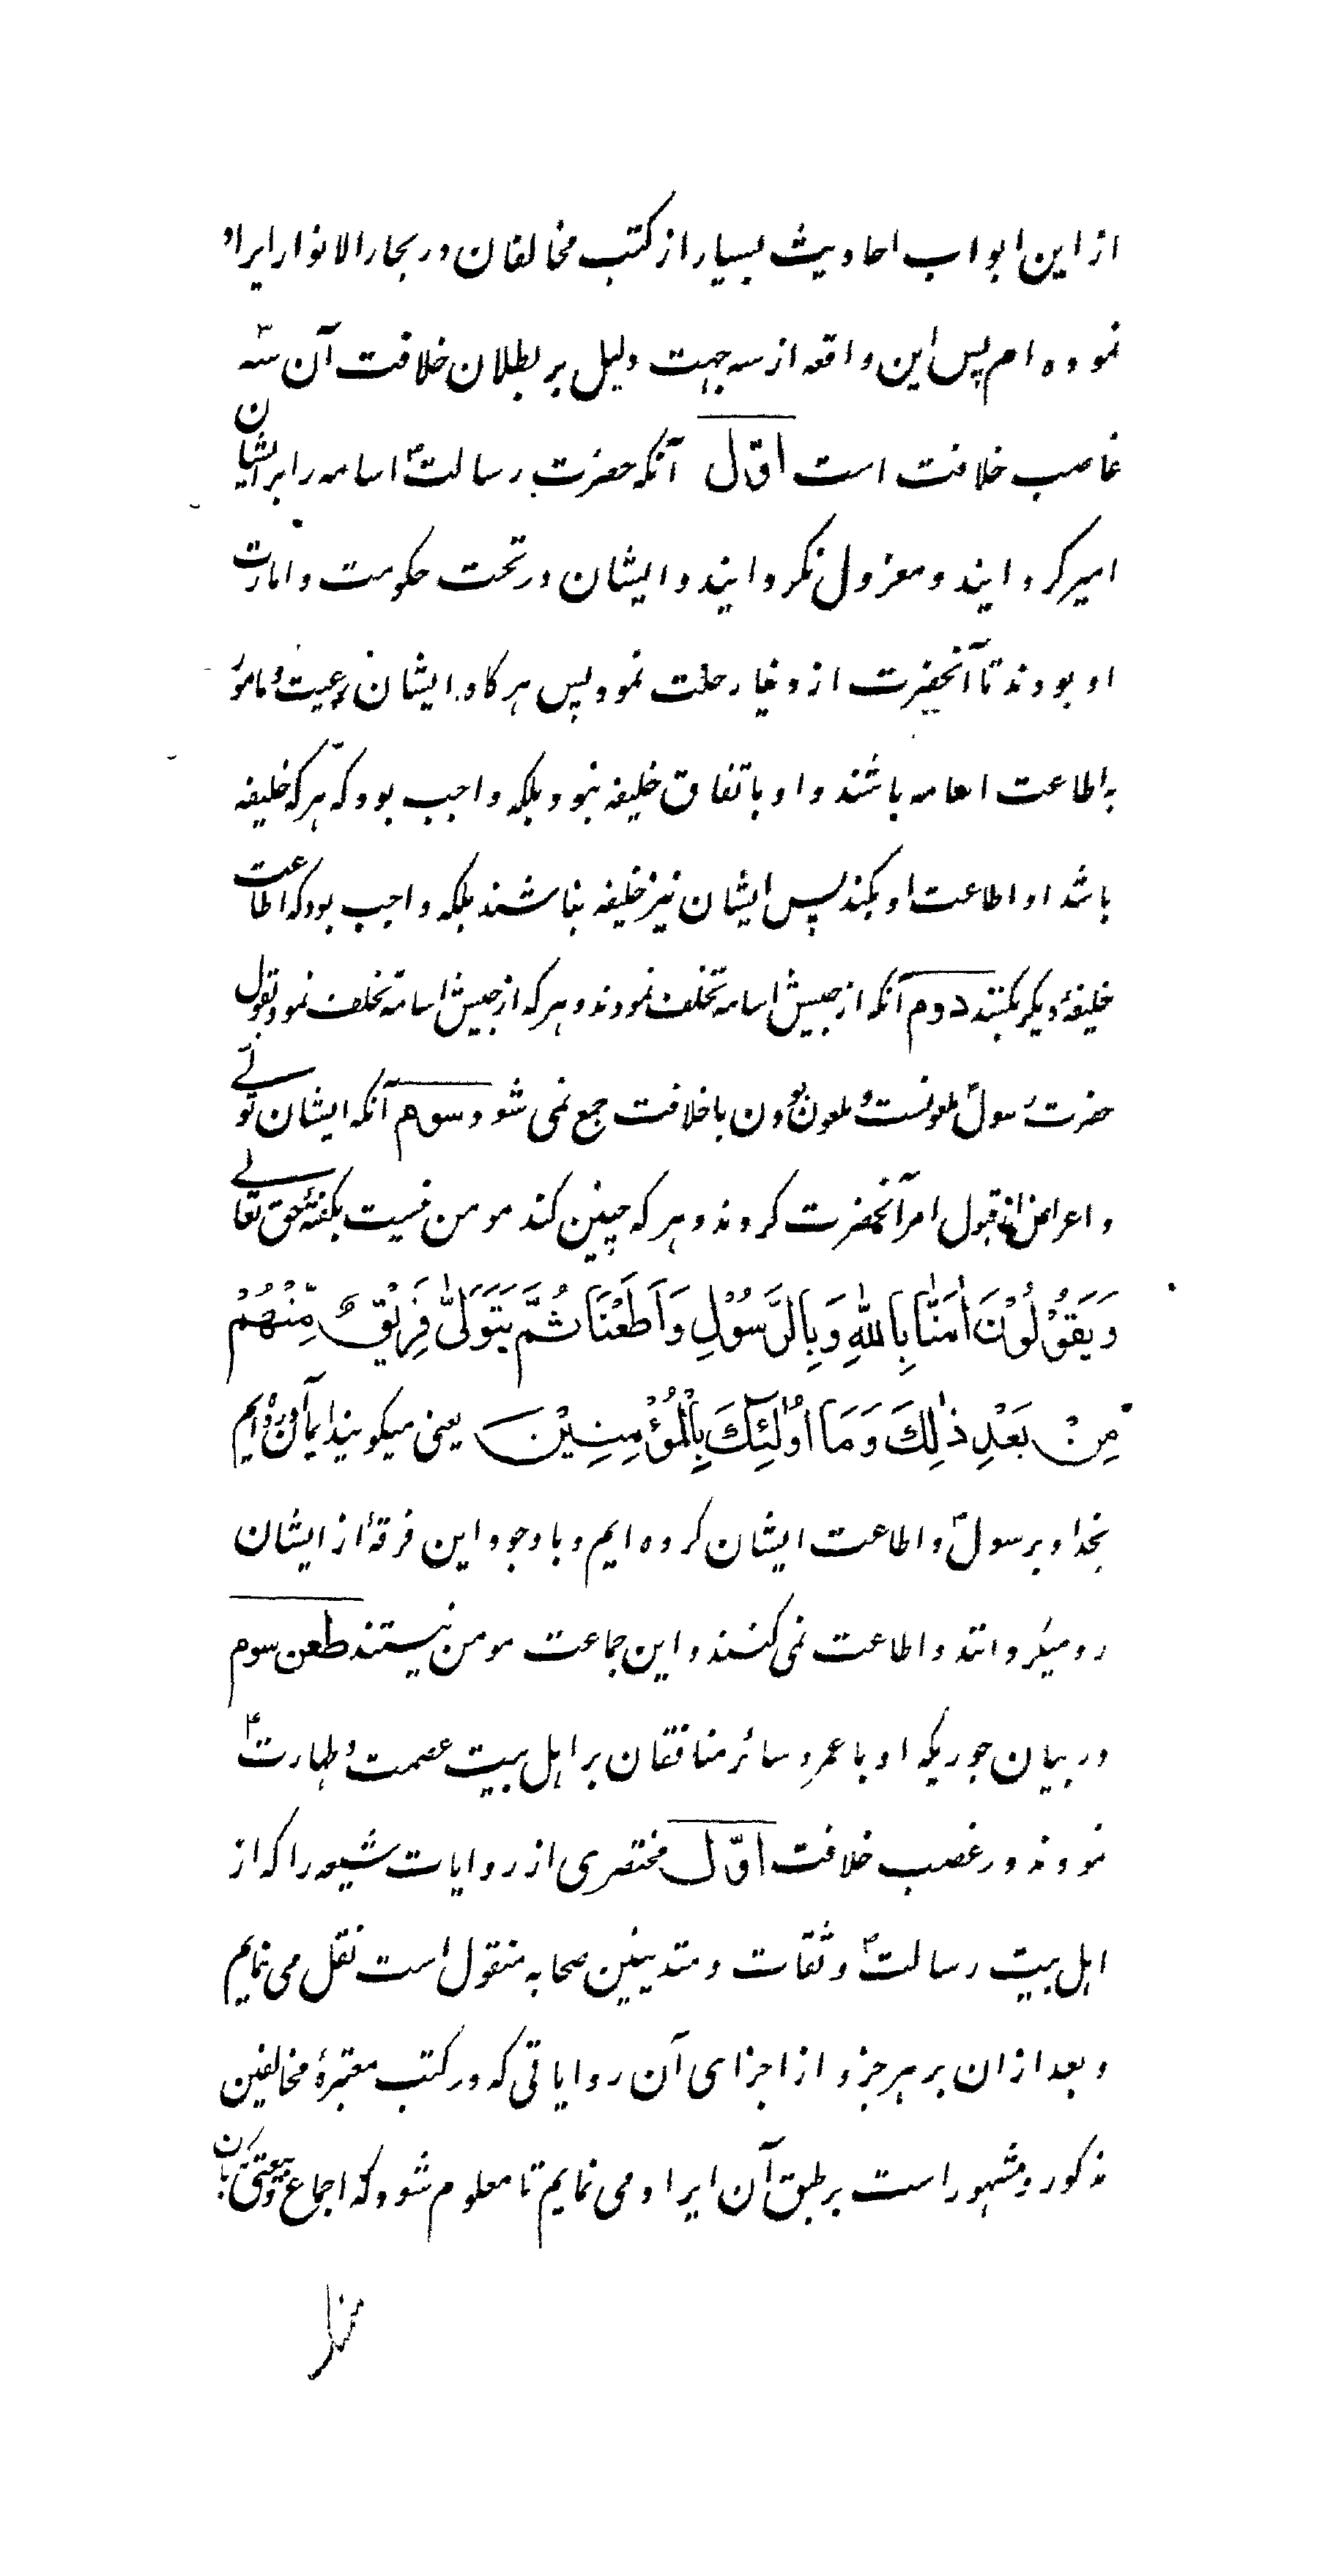 از این ابواب احادیث بسیار از کتب مخالفان در بحار الانوار ایراد
نموده ام پس این واقعه از سه جهت دلیل بر بطلان خلافت آن سه
غاصب خلافت است اوّل آنکه حضرت رسالتؐ اسامه را بر ایشان
امیر کردانید و معزول نکردانید و ایشان در تحت حکومت و امارت
او بودند تا آنحضرت از دنیا رحلت نمود پس هرکاه ایشان رعیت و مامور
به اطاعت اسامه باشند و او باتفاق خلیفه نبود بلکه واجب بود که هر که خلیفه
باشد او اطاعت او بکند پس ایشان نیز خلیفه نباشند بلکه واجب بود که اطاعت
خلیفهٔ دیکر بکنند دوم آنکه از جیش اسامه تخلف نمودند و هر که از جیش اسامه تخلف نمود بقول
حضرت رسولؐ ملعونست و ملعون بودن با خلافت جمع نمی شود سوم آنکه ایشان تولّے
و اعراض از قبول امر آنحضرت کردند و هر که چنین کند مومن نیست بکفتهٔ حق تعالے
وَيَقُوْلُوْنَ اٰمَنَّا بِاللّٰهِ وَبِالرَّسُوْلِ وَاَطَعْنَا ثُمَّ يَتَوَلّٰى فَرِيْقٌ مِّنْهُمْ
مِنْۢ بَعْدِ ذٰلِكَ وَمَا اُولٰٓئِكَ بِالْمُؤْمِنِيْنَ یعنی میکویند ایمان آورده ایم
بخدا و برسولؐ و اطاعت ایشان کرده ایم و با وجود این فرقهٔ از ایشان
رو میکردانند و اطاعت نمی کنند و این جماعت مومن نیستند طعن سوم
در بیان جوریکه او با عمر و سائر منافقان بر اهل بیت عصمت و طهارتؑ
نمودند در غصب خلافت اوّل مختصری از روایات شیعه را که از
اهل بیت رسالتؐ و ثقات و متدینین صحابه منقول است نقل می نمایم
و بعد از ان بر هر جزو از اجزای آن روایاتی که در کتب معتبرهٔ مخالفین
مذکور و مشهور است بر طبق آن ایراد می نمایم تا معلوم شود که اجماع و بیعتی که بآن